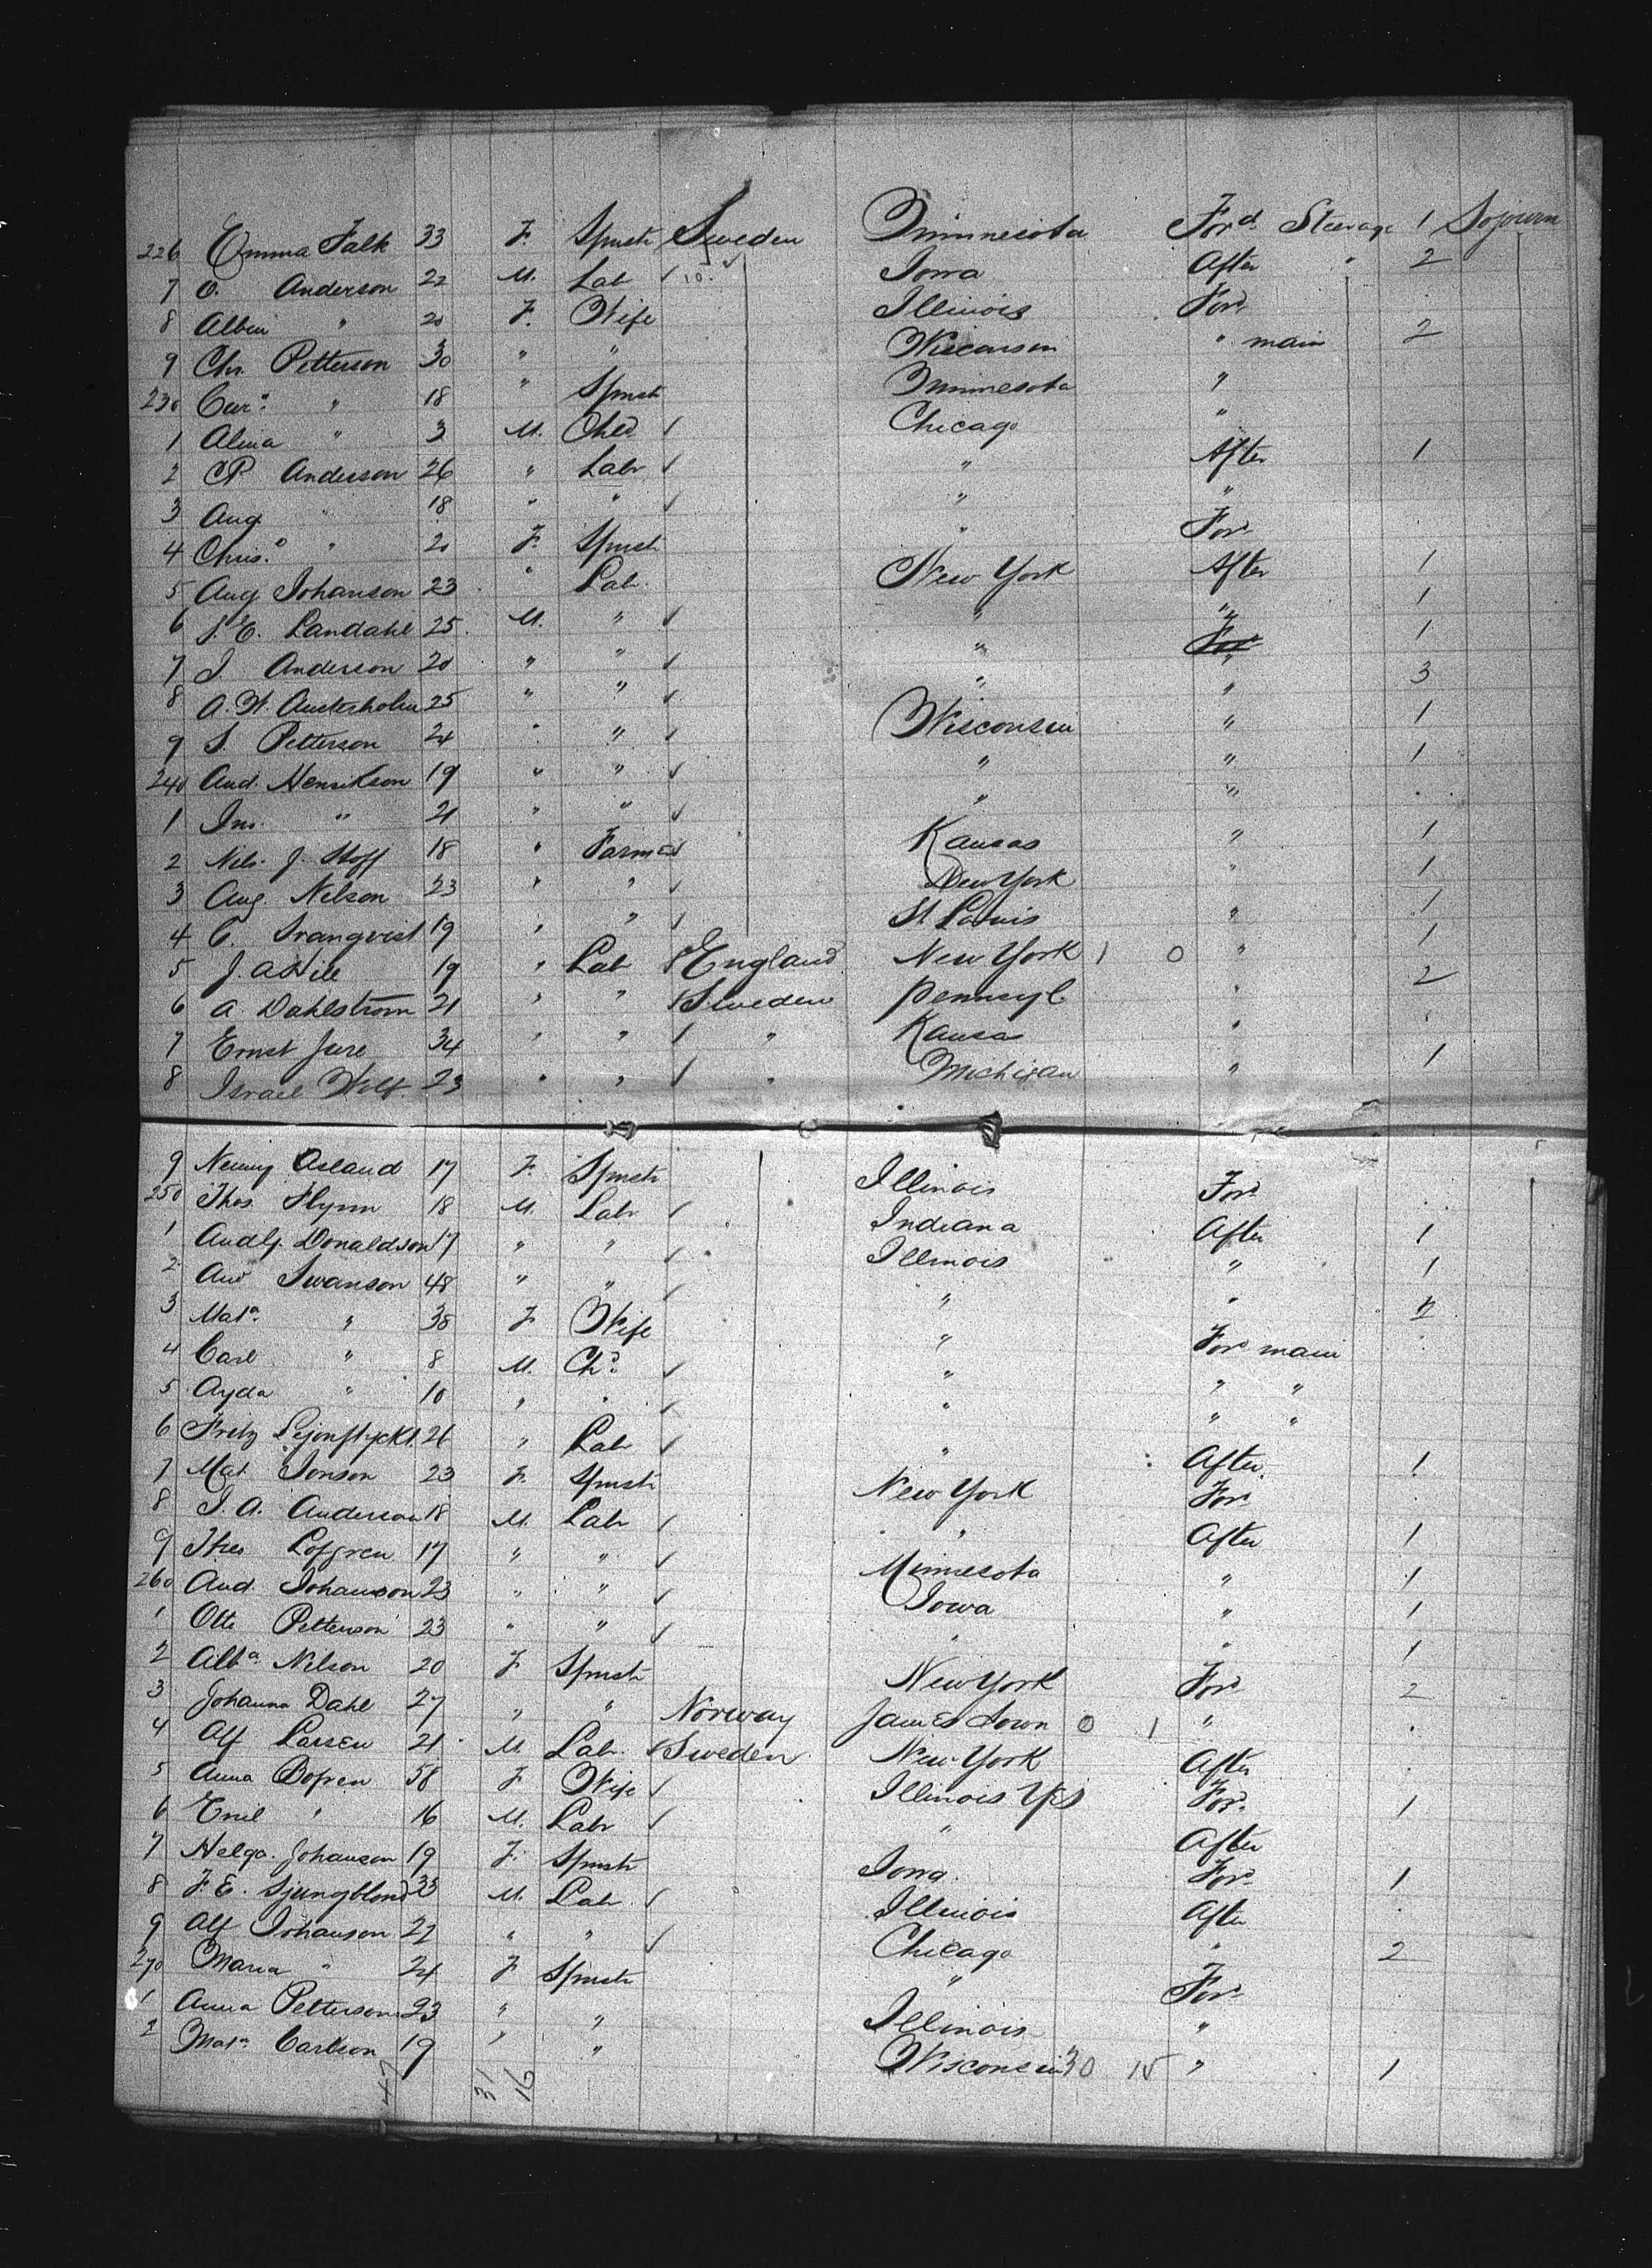 226 Emma Falk 33 F. Spnstr Sweden Minnesota Ford. Steerage 1 Sojourn
7 O. Anderson 22 M. Lab ✓ 10. ✓ Iowa After " 2
8 Albin " 20 F. Wife Illinois For.
9 Chr. Petterson 30 " " Wisconsin " main 2
230 Car. " 18 " Spnstr Minnesota "
1 Alma " 3 M. Chld ✓ Chicago "
2 CP. Anderson 26 " Labr ✓ " After 1
3 Aug. " 18 " " ✓ " "
4 Chris. " 20 F. Spnstr " For.
5 Aug Johanson 23 " Lab. New York After 1
6 S. E. Landahl 25. M. " ✓ " " 1
7 J. Anderson 20 " " ✓ " 1
8 A. W. Austerholm 25 " " ✓ " " 3
9 S. Petterson 24 " " ✓ Wisconsin " 1
240 And. Henrikson 19 " " ✓ " " 1
1 Jno. " 21 " " ✓ " "
2 Nils. J. Hoff 18 " Farmer ✓ Kansas " 1
3 Aug. Nelson 23 " " ✓ New York " 1
4 C. Tranqvist 19 " " ✓ St Louis " 1
5 J. A Hill 19 " Lab ✓ England New York 1 0 " 1
6 A. Dahlstrom 21 " " ✓ Sweden Pennsyl " 2
7 Ernst Jure 34 " " ✓ " Kansas "
8 Israel Wolf. 23 " " ✓ " Michigan " 1
9 Asland 17 F. Spnstr Illinois For.
250 Thos. Flynn 18 M. Labr ✓ Indiana After 1
1 Donaldson 17 " " ✓ Illinois " 1
2 And Swanson 48 " " ✓ " "
3 Mata. " 38 F Wife " For. main
4 Carl " 8 M. Chd. ✓ " " "
5 Ayda " 10 " " ✓ " " "
6 Fritz 21 " Labr ✓ " After 1
7 Mat. Jonson 23 F. Spnstr New York For.
8 J. A. Anderson 18 M. Labr ✓ " After 1
9 Lofgren 17 " " ✓ Minnesota " 1
260 And. Johanson 23 " " ✓ Iowa " 1
1 Otto Petterson 23 " " ✓ " " 1
2 Alba. Nilson 20 F Spnstr New York For. 2
3 Johanna Dahl 27 " " Norway James town 0 1 "
4 Alf Larsen 21 M. Lab. ✓ Sweden New York After
5 Anna 58 F Wife ✓ Illinois Yes For. 1
6 Emil " 16 M. Labr ✓ " After
7 Helga. Johanson 19 F. Spnstr Iowa. For. 1
8 F. E. Sjungblond 33 M. Lab ✓ Illinois After
9 Alf Johanson 22 " " ✓ Chicago " 2
270 Maria " 24 F Spnstr " For.
1 Anna Petterson 23 " " Illinois "
2 Mata. Carlson 19 " " Wisconsin 30 15 " 1
47 31 16